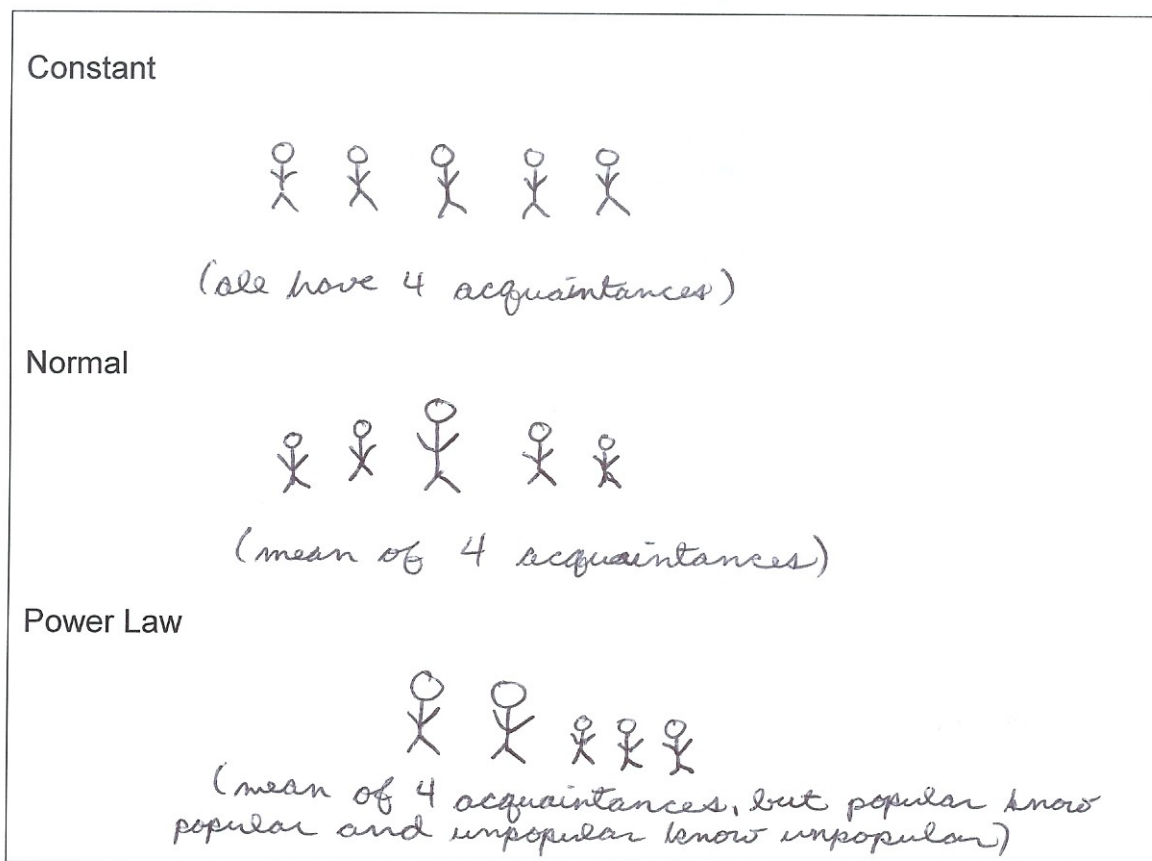 Constant
(all have 4 acquaintances)
Normal
(mean of 4 acquaintances)
Power Law
(mean of 4 acquaintances, but popular know
popular and unpopular know unpopular)